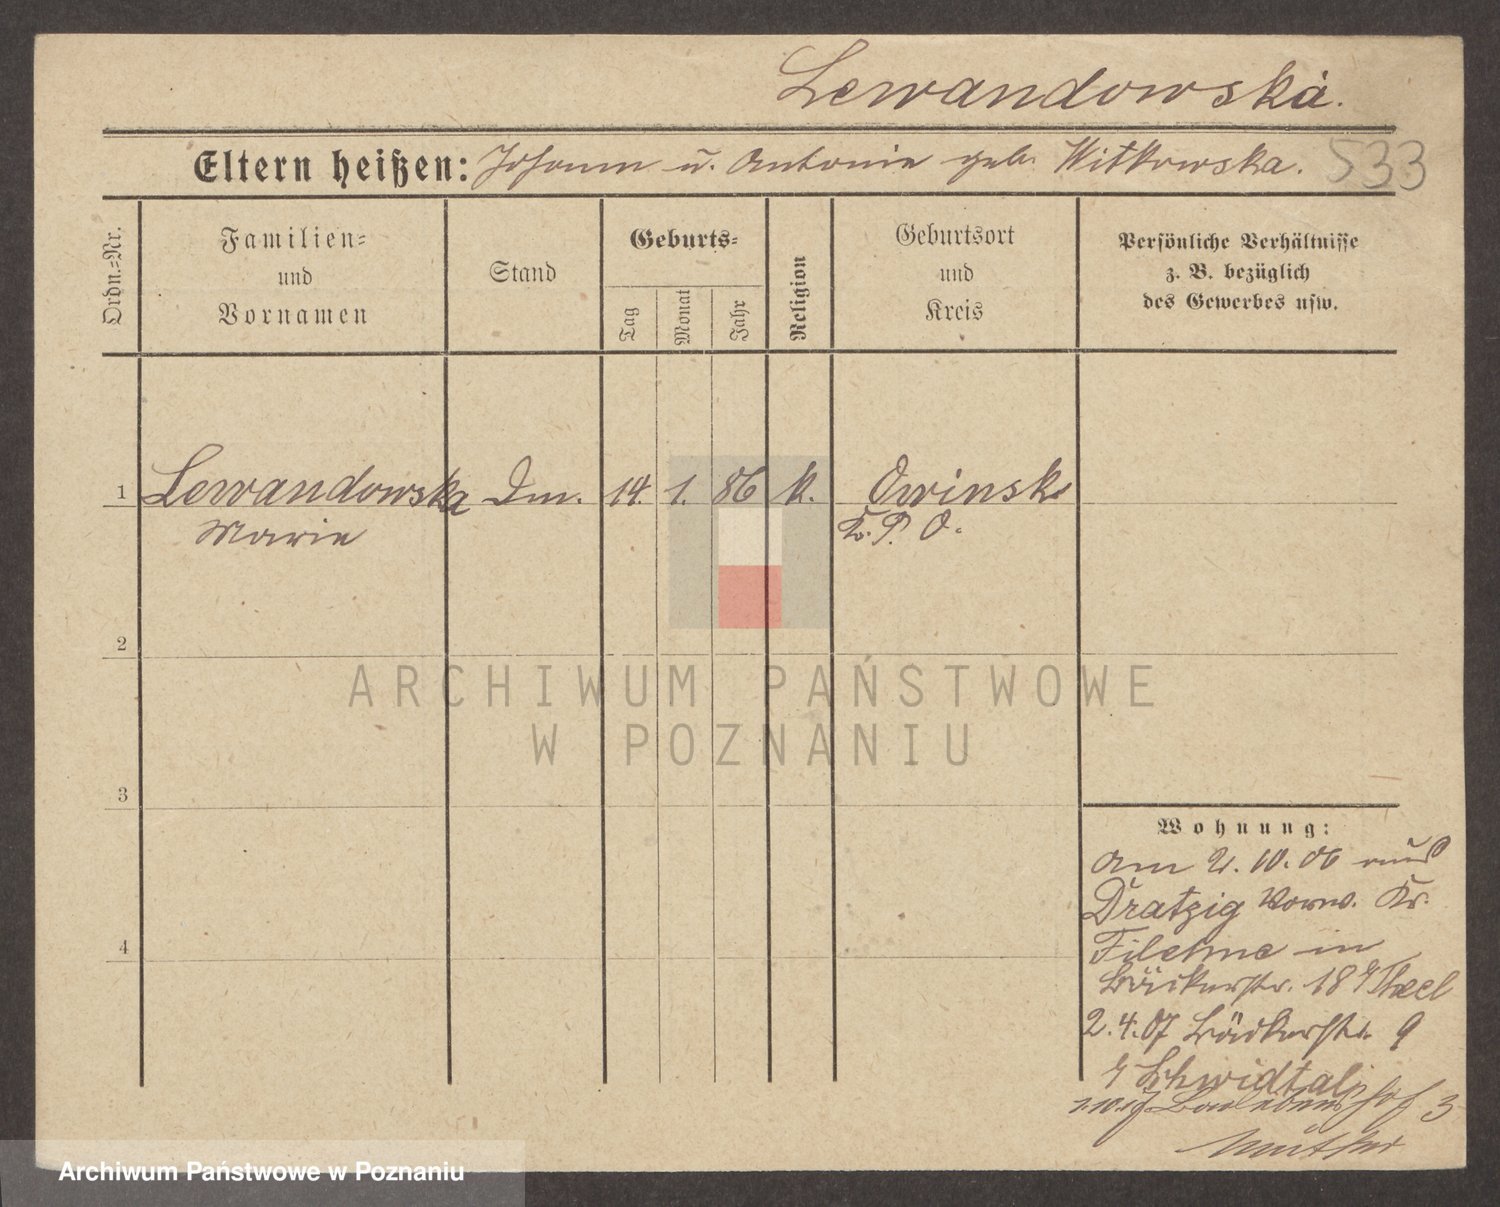 Lewandowska.
Eltern heißen: Johann u. Antonie geb. Witkowska. 533
Ordn.=Nr.
Familien=
und
Vornamen
Stand
Geburts=
Tag
Monat
Jahr
Religion
Geburtsort
und
Kreis
Persönliche Verhältnisse
z. B. bezüglich
des Gewerbes usw.
1 Lewandowska Dm. 14. 1. 86 k. Owinsk
Marie Kr. P. O.
2
3
4
Wohnung:
am 2. 10. 06 aus
Dratzig Vorw. Kr.
Filehne in
Bäckerstr. 18
2.4.07 Bäckerstr. 9
hof 3
ARCHIWUM PAŃSTWOWE
W POZNANIU
Archiwum Państwowe w Poznaniu